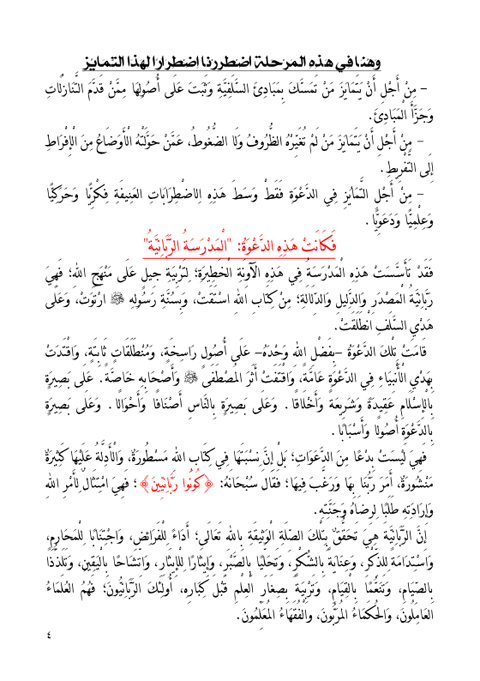 وهنا في هذه المرحلة اضطررنا اضطرارا لهذا التمايز
- مِنْ أَجْلِ أَنْ يَتَمَايَزَ مَنْ تَمَسَّكَ بِمَبَادِئِ السَّلَفِيَّةِ وَثَبَتَ عَلَى أُصُولِهَا مِمَّنْ قَدَّمَ التَّنَازُلَاتِ
وَجَزَّأَ الْمَبَادِئَ.
- مِنْ أَجْلِ أَنْ يَتَمَايَزَ مَنْ لَمْ تُغَيِّرْهُ الظُّرُوفُ وَلَا الضُّغُوطُ، عَمَّنْ حَوَّلَتْهُ الْأَوْضَاعُ مِنَ الْإِفْرَاطِ
إِلَى التَّفْرِيطِ.
- مِنْ أَجْلِ التَّمَايُزِ فِي الدَّعْوَةِ فَقَطْ وَسَطَ هَذِهِ الِاضْطِرَابَاتِ العَنِيفَةِ فِكْرِيًّا وَحَرَكِيًّا
وَعِلْمِيًّا وَدَعَوِيًّا .
فَكَانَتْ هَذِهِ الدَّعْوَةُ: "الْمَدْرَسَةُ الرَّبَّانِيَّةُ"
فَقَدْ تَأَسَّسَتْ هَذِهِ الْمَدْرَسَةُ فِي هَذِهِ الْآوِنَةِ الْخَطِيرَةِ؛ لِتَرْبِيَةِ جِيلٍ عَلَى مَنْهَجِ اللهِ؛ فَهِيَ
رَبَّانِيَّةُ الْمَصْدَرِ وَالدَّلِيلِ وَالدَّلَالَةِ؛ مِنْ كِتَابِ اللهِ اسْتَقَتْ، وَبِسُنَّةِ رَسُولِهِ ﷺ ارْتَوَتْ، وَعَلَى
هَدْيِ السَّلَفِ انْطَلَقَتْ.
قَامَتْ تِلْكَ الدَّعْوَةُ –بِفَضْلِ اللهِ وَحْدَهُ– عَلَى أُصُولٍ رَاسِخَةٍ، وَمُنْطَلَقَاتٍ ثَابِتَةٍ، وَاقْتَدَتْ
بِهَدْيِ الْأَنْبِيَاءِ فِي الدَّعْوَةِ عَامَّةً، وَاقْتَفَتْ أَثَرَ الْمُصْطَفَى ﷺ وَأَصْحَابِهِ خَاصَّةً. عَلَى بَصِيرَةٍ
بِالْإِسْلَامِ عَقِيدَةً وَشَرِيعَةً وَأَخْلَاقًا . وَعَلَى بَصِيرَةٍ بِالنَّاسِ أَصْنَافًا وَأَحْوَالًا . وَعَلَى بَصِيرَةٍ
بِالدَّعْوَةِ أُصُولًا وَأَسْبَابًا .
فَهِيَ لَيْسَتْ بِدْعًا مِنَ الدَّعَوَاتِ؛ بَلْ إِنَّ نِسْبَتَهَا فِي كِتَابِ اللهِ مَسْطُورَةٌ، وَالْأَدِلَّةُ عَلَيْهَا كَثِيرَةٌ
مَنْشُورَةٌ، أَمَرَ رَبُّنَا بِهَا وَرَغَّبَ فِيهَا؛ فَقَالَ سُبْحَانَهُ: ﴿كُونُوا رَبَّانِيِّينَ﴾ ؛ فَهِيَ امْتِثَالٌ لِأَمْرِ اللهِ
وَإِرَادَتِهِ طَلَبًا لِرِضَاهُ وَجَنَّتِهِ.
إِنَّ الرَّبَّانِيَّةَ هِيَ تَحَقُّقٌ بِتِلْكَ الصِّلَةِ الْوَثِيقَةِ بِاللهِ تَعَالَى؛ أَدَاءً لِلْفَرَائِضِ، وَاجْتِنَابًا لِلْمَحَارِمِ،
وَاسْتِدَامَةً لِلذِّكْرِ، وَعِنَايَةً بِالشُّكْرِ، وَتَحَلِّيًا بِالصَّبْرِ، وَإِيثَارًا لِلْإِيثَارِ، وَاتِّشَاحًا بِالْيَقِينِ، وَتَلَذُّذًا
بِالصِّيَامِ، وَتَنَعُّمًا بِالْقِيَامِ، وَتَرْبِيَةً بِصِغَارِ الْعِلْمِ قَبْلَ كِبَارِهِ، أُولَئِكَ الرَّبَّانِيُّونَ؛ فَهُمُ الْعُلَمَاءُ
الْعَامِلُونَ، وَالْحُكَمَاءُ الْمُرَبُّونَ، وَالْفُقَهَاءُ الْمُعَلِّمُونَ.
٤